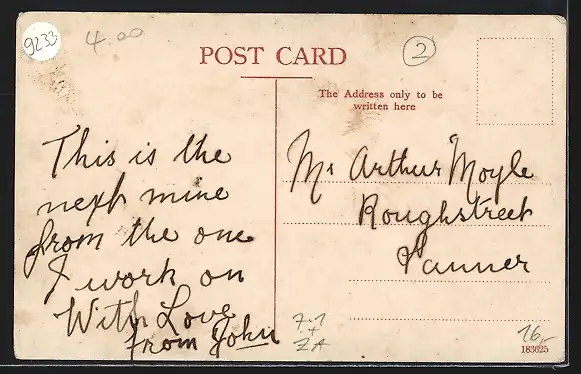 9233
4.00
POST CARD
2
The Address only to be
written here
This is the
next mine
from the one
I work on
With Love
from John
Mr Arthur Moyle
Roughstreet
Lanner
7.1
+
ZA
16,-
183625